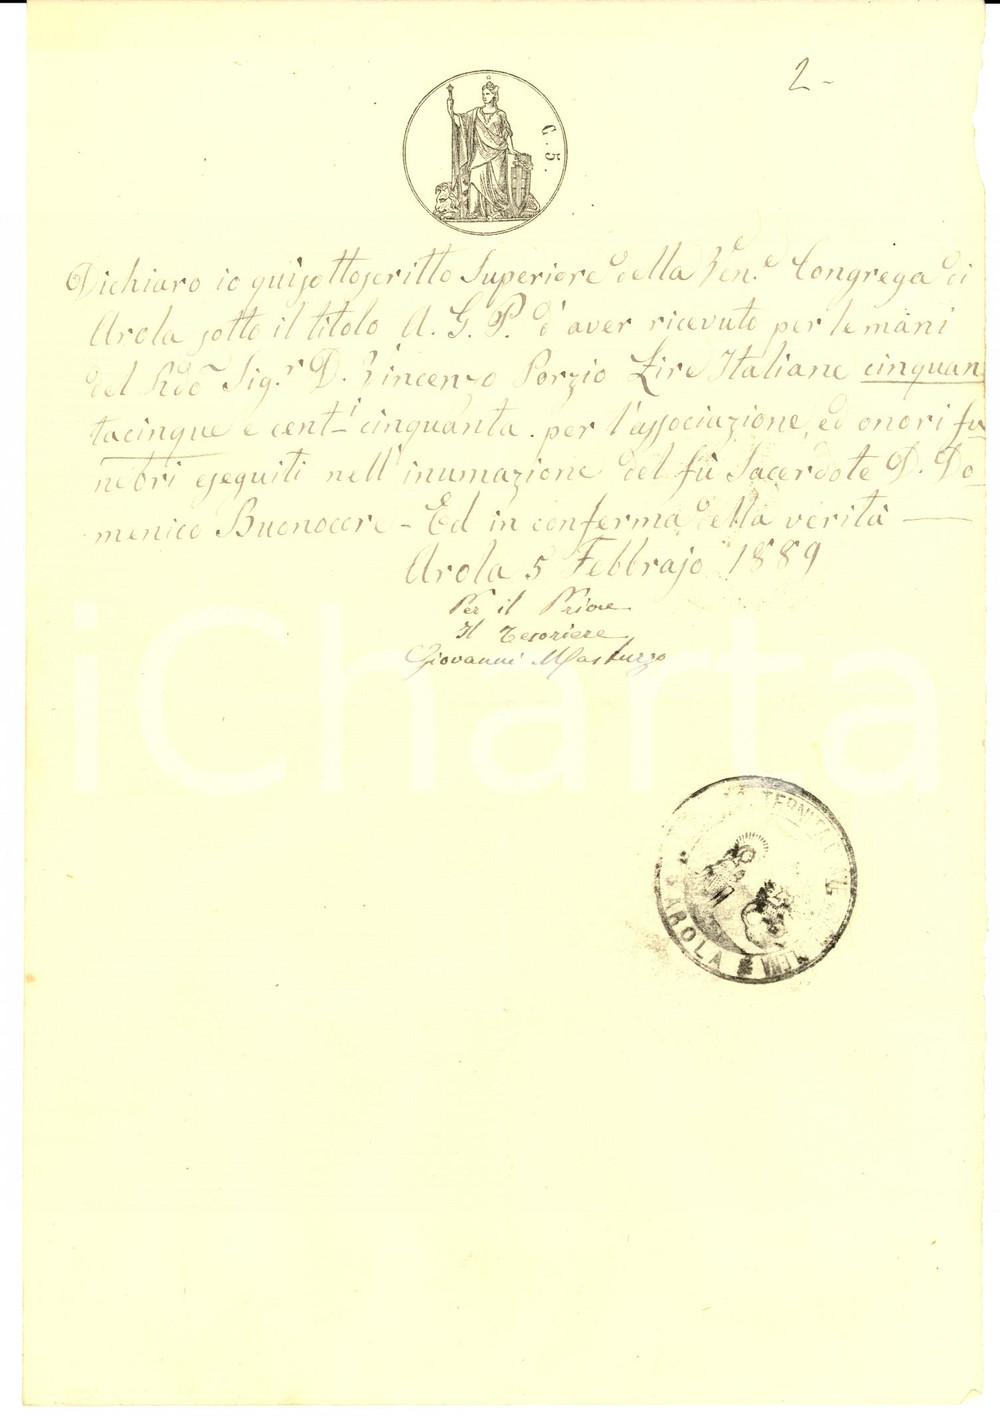 2-
G. 5.
Dichiaro io quisottoscritto Superiore della Ven.e Congrega di
Arola sotto il titolo A. G. P. d'aver ricevuto per le mani
del Rdo Sig.r D. Vincenzo Porzio Lire Italiane cinquan
tacinque e centi cinquanta per l'associazione, ed onori fu
nebri eseguiti nell'inumazione del fù Sacerdote D. Do-
menico Buonocore - Ed in conferma della verità —
Arola 5 Febbrajo 1889
Per il Priore
Il Tesoriere
Giovanni Masturzo
iCharta
AROLA